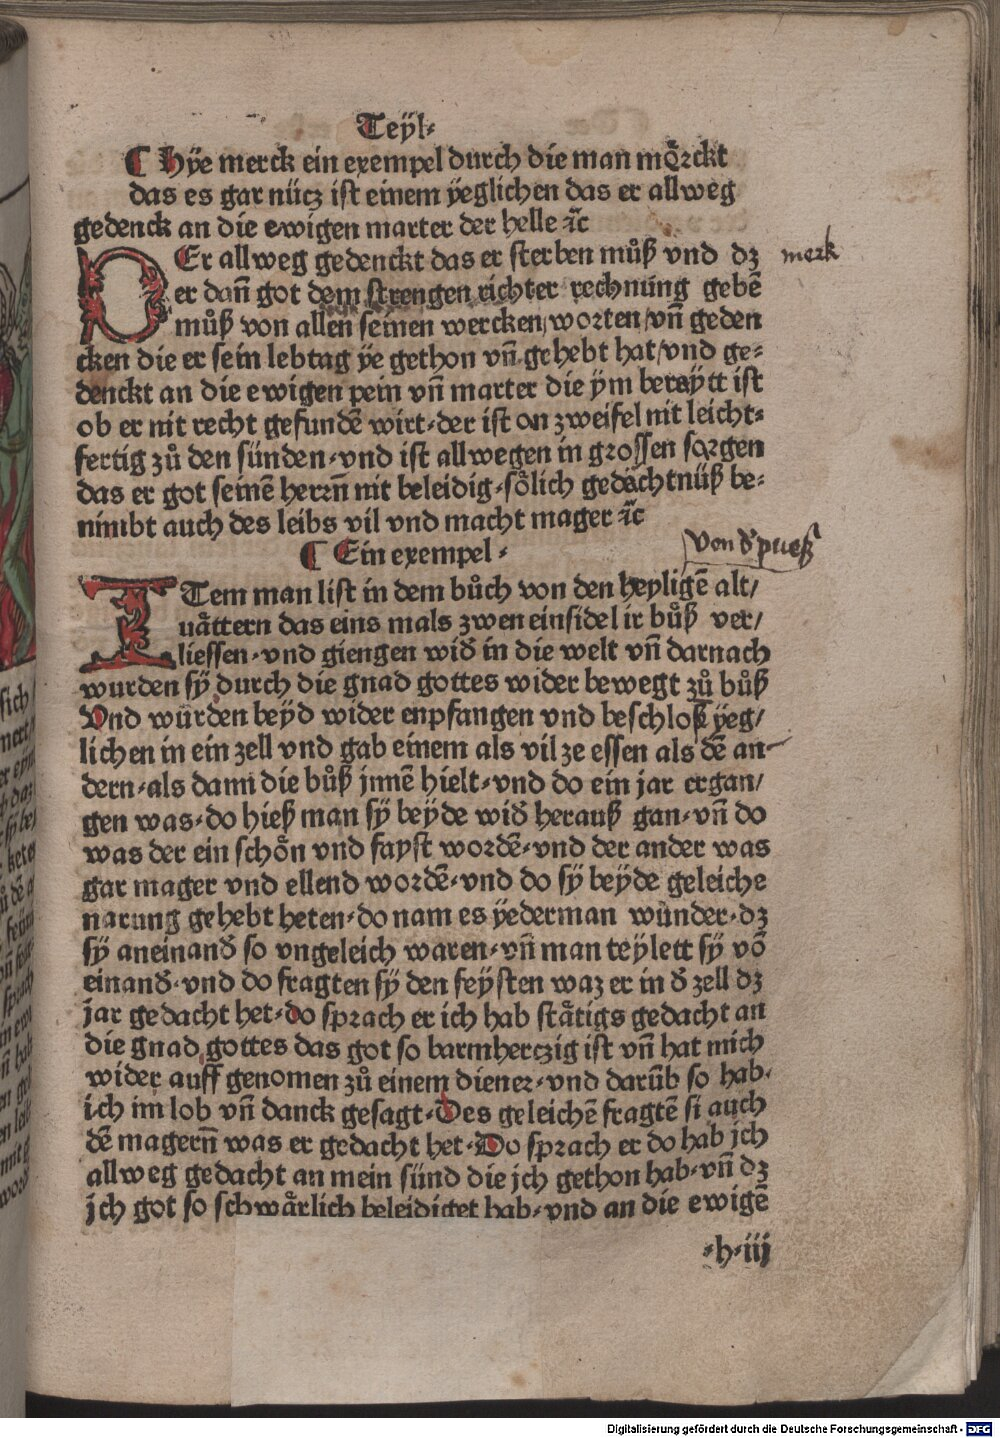 Teÿl·
¶ Hÿe merck ein exempel durch die man mErckt
das es gar nücz ist einem ÿeglichen das er allweg
gedenck an die ewigen marter der helle ⁊c̃
DEr allweg gedenckt das er sterben můß vnd dz
merk
er dañ got dem strengen richter rechnung gebẽ
můß von allen seinen wercken/worten/vñ geden
cken die er sein lebtag ÿe gethon vñ gehebt hat/vnd ge⸗
denckt an die ewigen pein vñ marter die ÿm beraÿtt ist
ob er nit recht gefundẽ wirt·der ist on zweifel nit leicht⸗
fertig zů den sünden·vnd ist allwegen in grossen sorgen
das er got seinẽ herrñ nit beleidig·sölich gedächtnüß be⸗
nimbt auch des leibs vil vnd macht mager ⁊c̃
Von d' pueß
¶ Ein exempel·
ITem man list in dem bůch von den heyligẽ alt/
uättern das eins mals zwen einsidel ir bůß ver/
liessen·vnd giengen wid' in die welt vñ darnach
wurden sÿ durch die gnad gottes wider bewegt zů bůß
Vnd würden beÿd wider enpfangen vnd beschloß ÿeg/
lichen in ein zell vnd gab einem als vil ze essen als dẽ an
dern·als dann die bůß jnnẽ hielt·vnd do ein jar ergan/
gen was·do hieß man sÿ beÿde wid' herauß gan·vñ do
was der ein schön vnd fayst wordẽ·vnd der ander was
gar mager vnd ellend wordẽ·vnd do sÿ beÿde geleiche
narung gehebt heten·do nam es ÿederman wunder·dz
sÿ aneinand' so vngeleich waren·vñ man teÿlett sÿ võ
einand'·vnd do fragten sÿ den feÿsten waz er in d' zell dz
jar gedacht het·do sprach er ich hab stätigs gedacht an
die gnad gottes das got so barmherczig ist vñ hat mich
wider auff genomen zů einem diener·vnd darũb so hab·
ich im lob vñ danck gesagt·Des geleichẽ fragtẽ si auch
dẽ magerñ was er gedacht het·Do sprach er do hab jch
allweg gedacht an mein sünd die jch gethon hab·vñ dz
jch got so schwärlich beleidiget hab·vnd an die ewigẽ
·h·iij
Digitalisierung gefördert durch die Deutsche Forschungsgemeinschaft - DFG